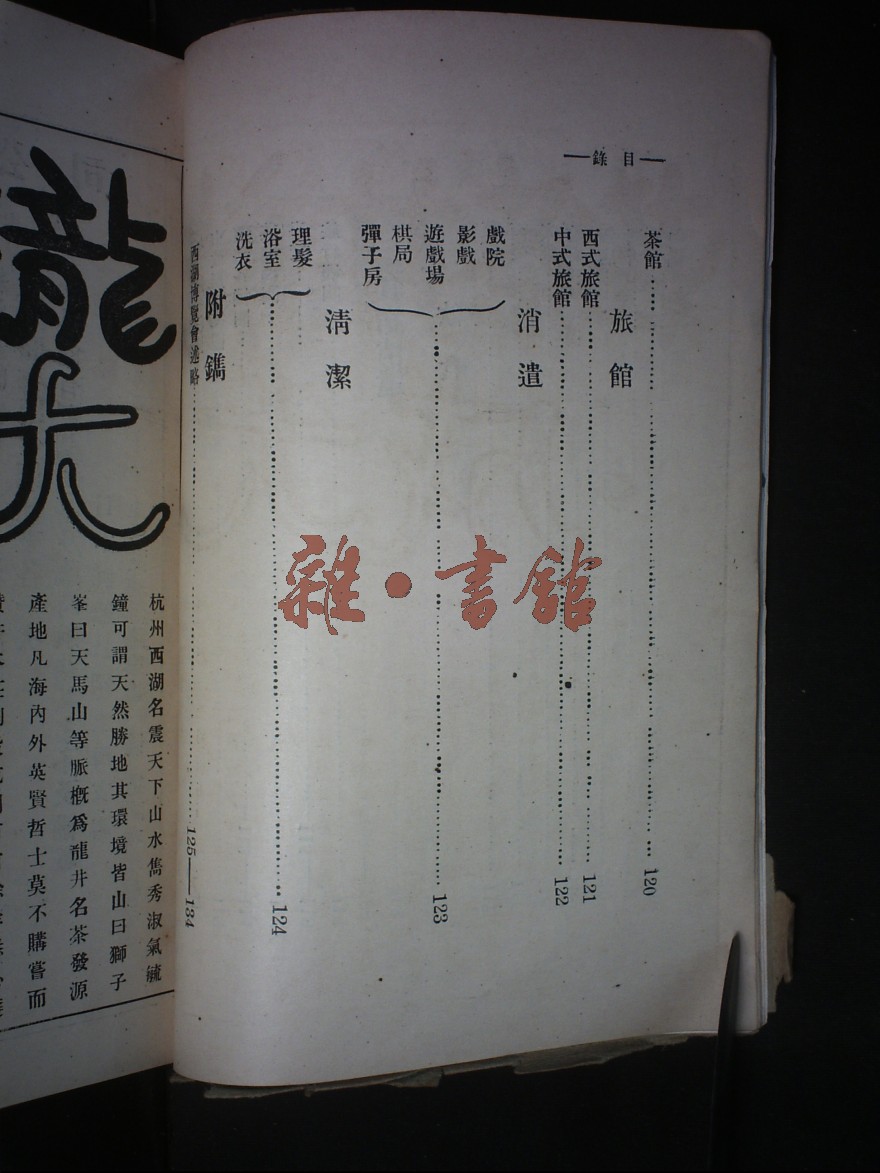 —目錄—
茶館……120
旅館
西式旅館……121
中式旅館……122
消遣
戲院
影戲
遊戲場
棋局
彈子房
……123
清潔
理髮
浴室
洗衣
……124
附鐫
西湖博覽會述略……125—134
雜·書館
龍
大
杭州西湖名震天下山水雋秀淑氣毓
鐘可謂天然勝地其環境皆山曰獅子
峯曰天馬山等脈概爲龍井名茶發源
產地凡海內外英賢哲士莫不購嘗而